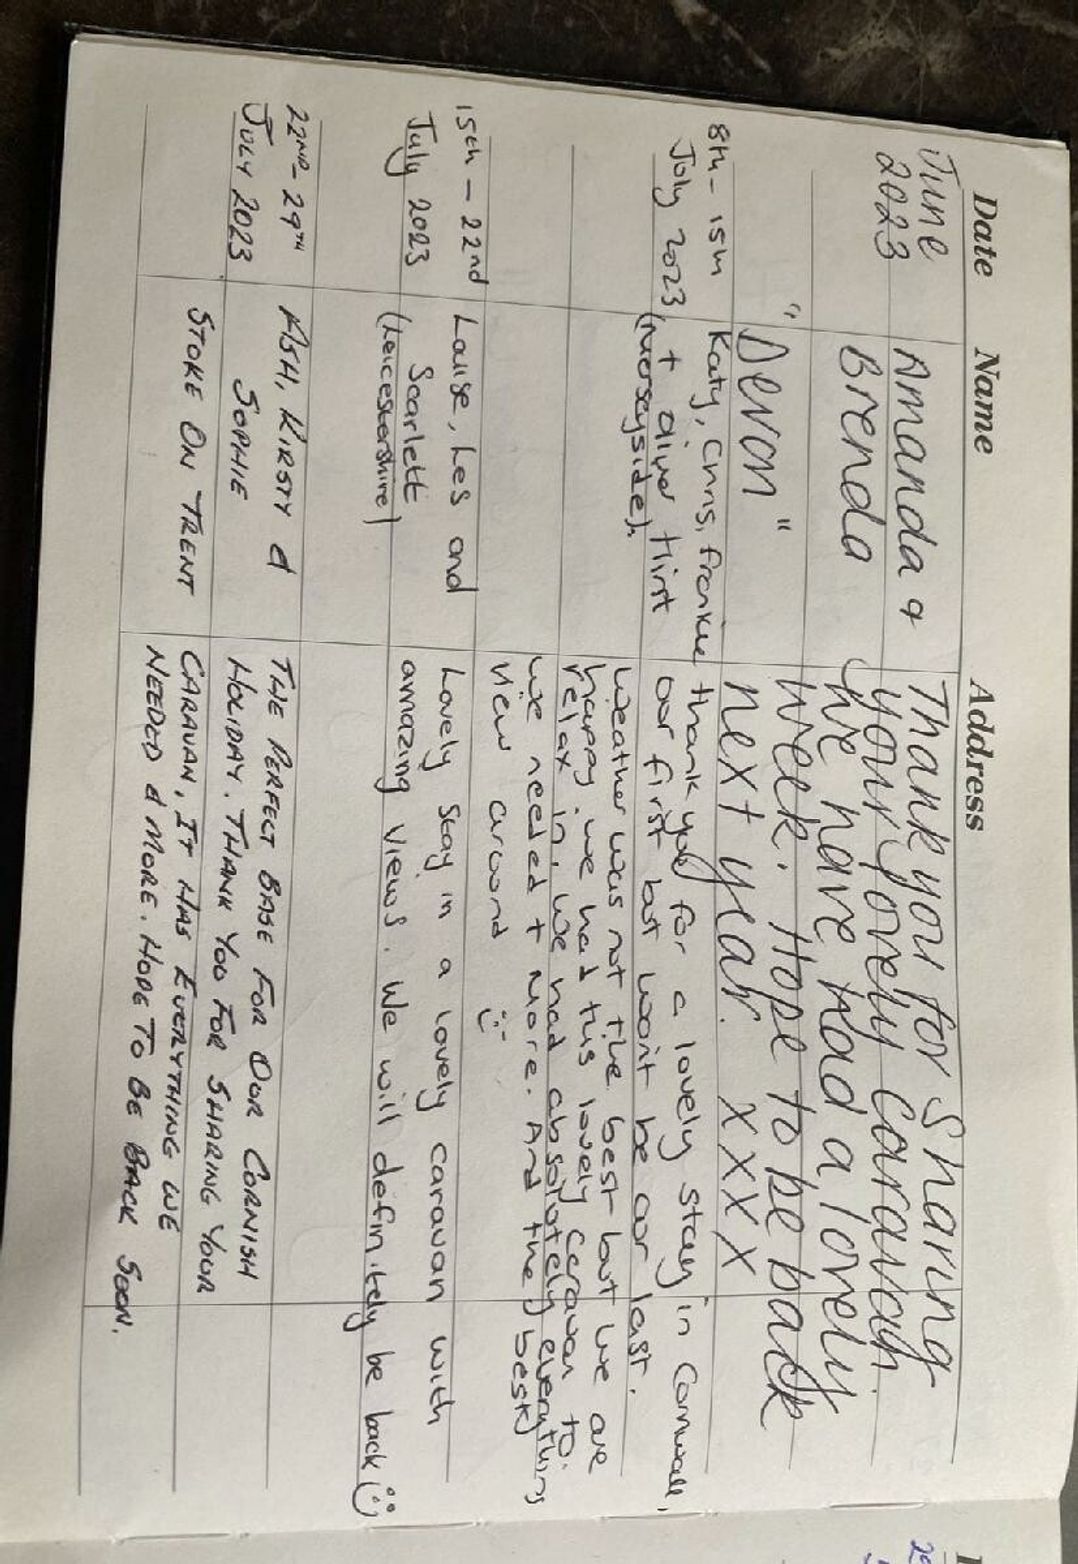 Date Name Address
June 2023
Amanda & Brenda
"Devon"
Thank you for Sharing
your lovely Caravan.
We have had a lovely
week. Hope to be back
next year. x x x x
8th - 15th July 2023
Katy, Chris, Frankie
+ Oliver Hirst
(Merseyside).
thank you for a lovely stay in Cornwall,
our first but wont be our last.
Weather was not the best but we are
happy we had this lovely caravan to
relax in, we had absolutely everything
we needed + more. And the best
view around :)
15th - 22nd July 2023
Louise, Les and
Scarlett
(Leicestershire)
Lovely Stay in a lovely caravan with
amazing views. We will definitely be back :)
22ND - 29TH JULY 2023
ASH, KIRSTY &
SOPHIE
STOKE ON TRENT
THE PERFECT BASE FOR OUR CORNISH
HOLIDAY. THANK YOU FOR SHARING YOUR
CARAVAN, IT HAS EVERYTHING WE
NEEDED & MORE. HOPE TO BE BACK SOON.